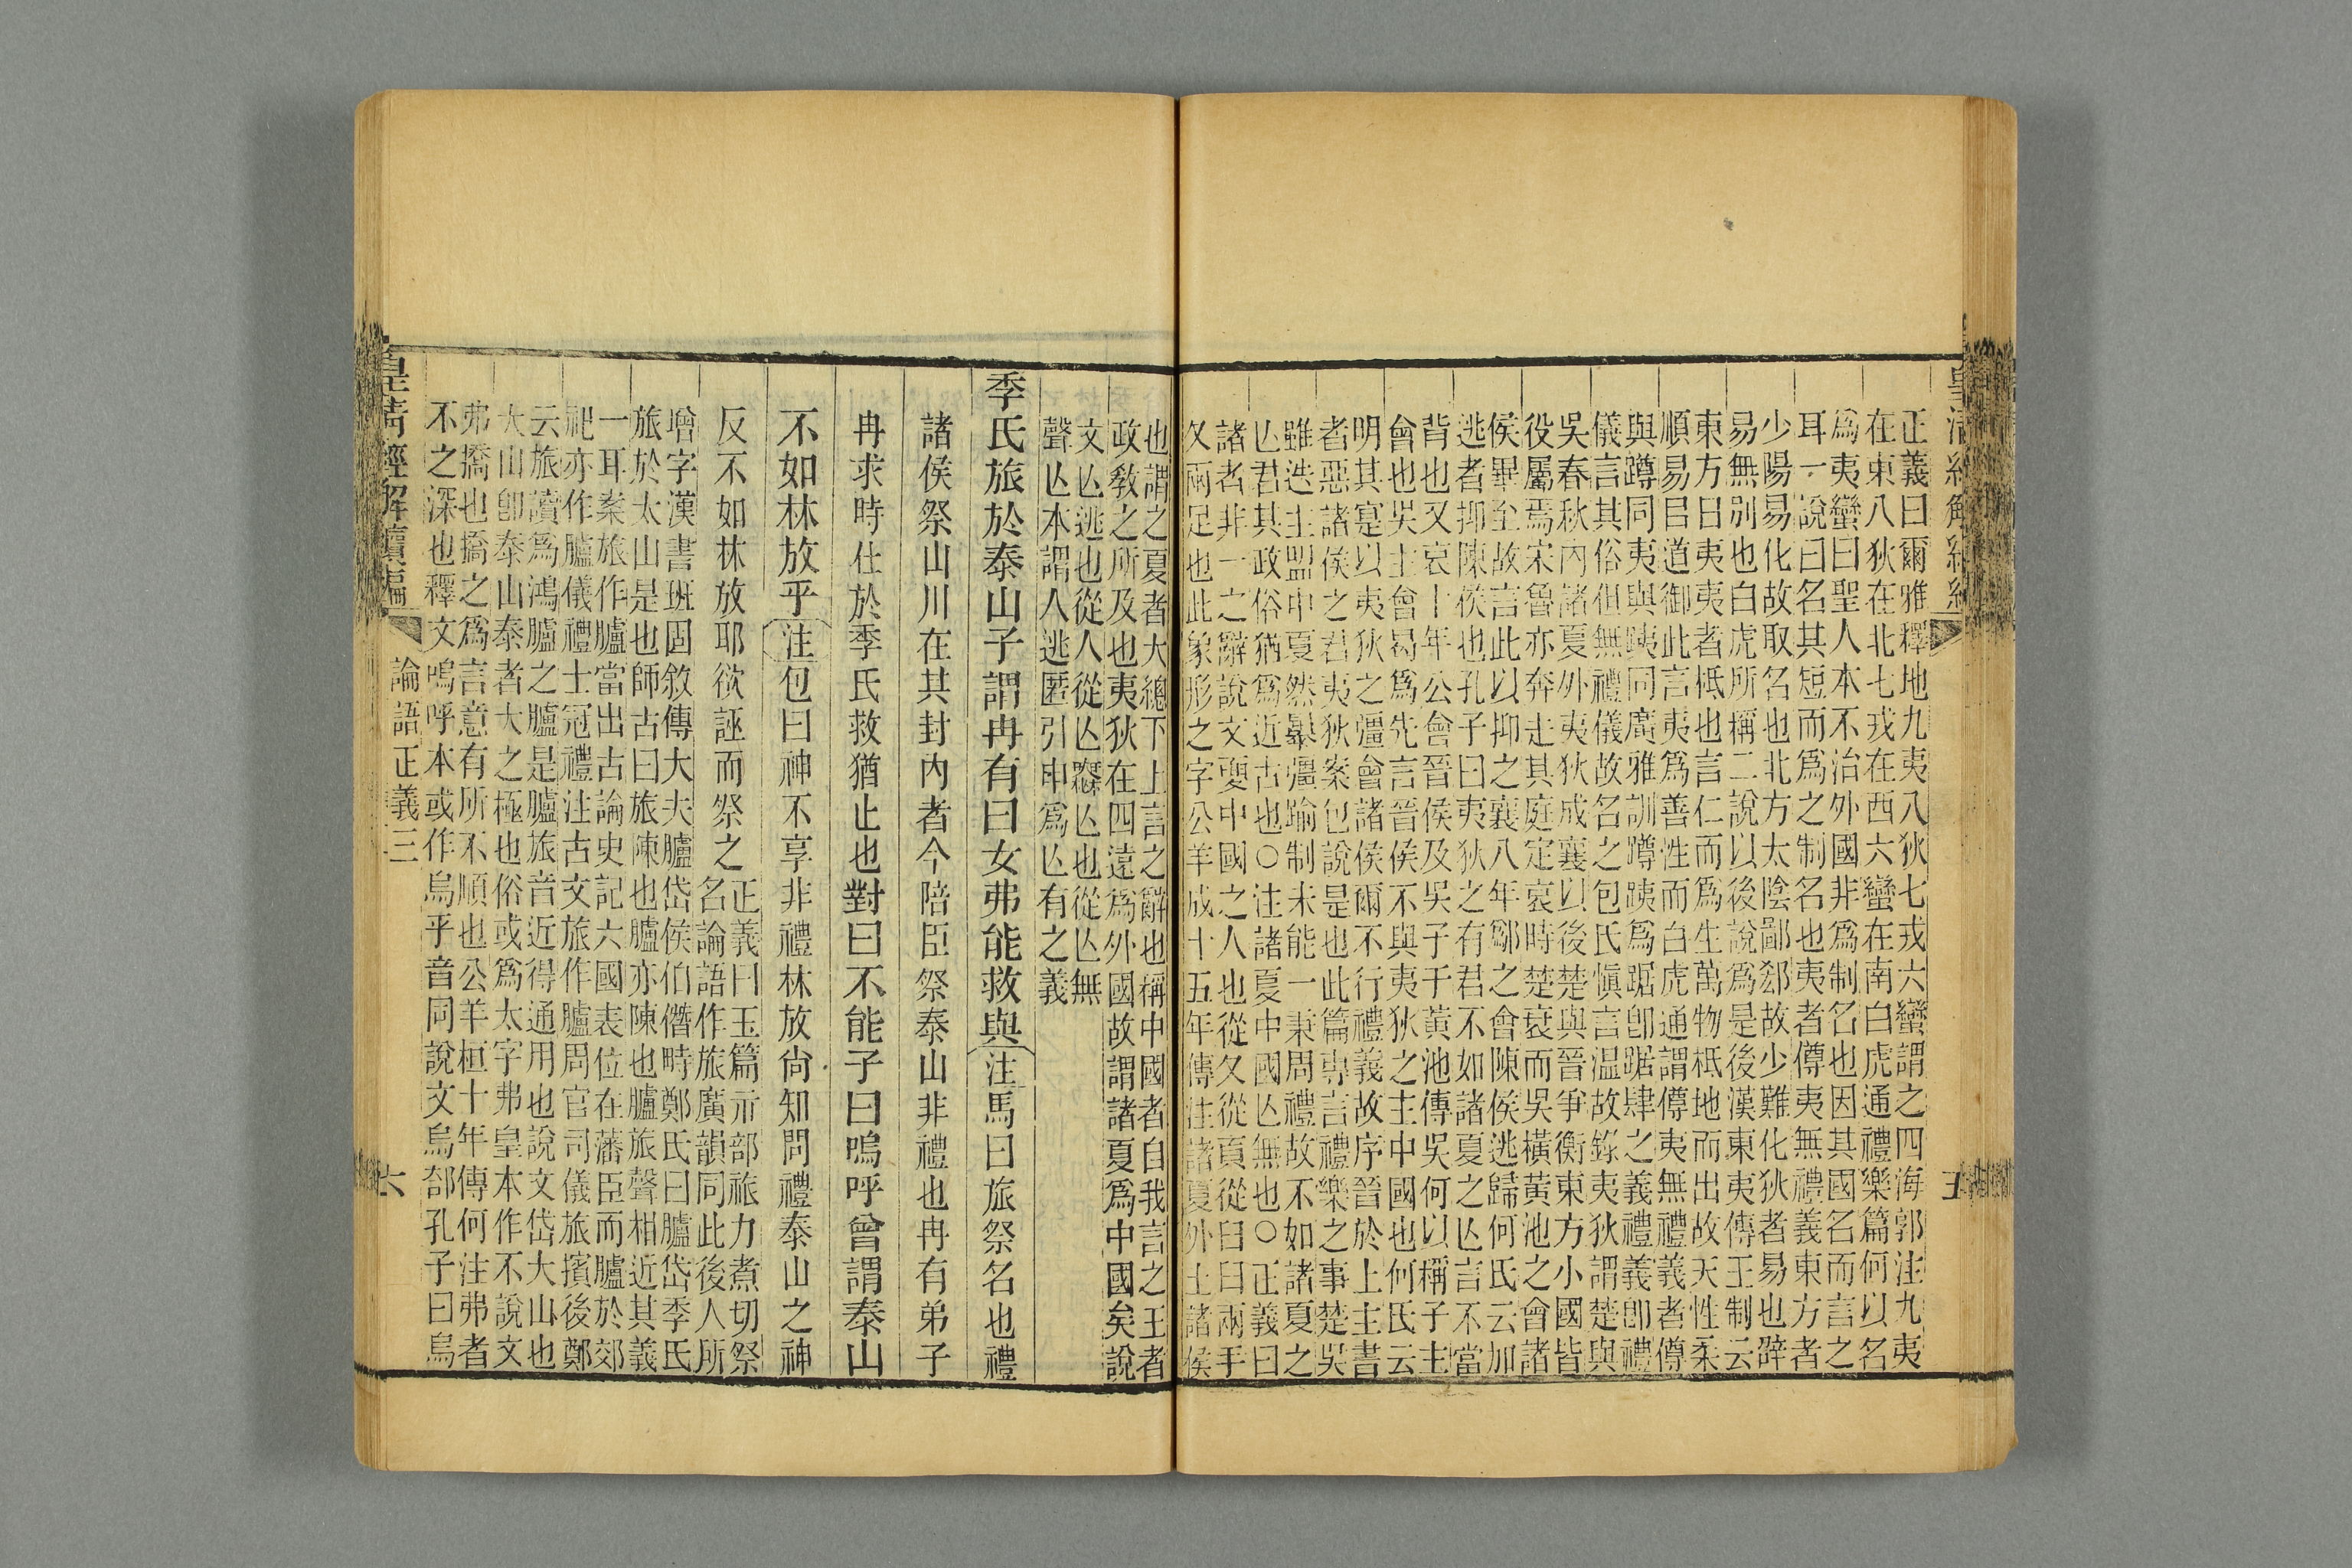 皇清經解續編
正義曰爾雅釋地九夷八狄七戎六蠻謂之四海郭注九夷
在東八狄在北七戎在西六蠻在南白虎通禮樂篇何以名
爲夷蠻曰聖人本不治外國非爲制名也因其國名而言之
耳一說曰名其短而爲之制名也夷者僔夷無禮義東方者
少陽易化故取名也北方太陰鄙郄故少難化狄者易也辟
易無別也白虎所稱二說以後說爲是後漢東夷傳王制云
東方曰夷夷者柢也言仁而爲生萬物柢地而出故天性柔
順易㠯道御此言夷爲善性而白虎通謂僔夷無禮義者僔
與蹲同夷與跠同廣雅訓蹲跠爲踞卽踞肆之義禮義卽禮
儀言其俗但無禮儀故名之包氏愼言温故錄夷狄謂楚與
吳春秋內諸夏外夷狄成襄以後楚與晉爭衡東方小國皆
役屬焉宋魯亦奔走其庭定哀時楚衰而吳橫黃池之會諸
侯畢至故言此以抑之襄八年鄬之會陳侯逃歸何氏云加
逃者抑陳侯也孔子曰夷狄之有君不如諸夏之亾言不當
背也又哀十年公會晉侯及吳子于黃池傳吳何以稱子主
會也吳主會曷爲先言晉侯不與夷狄之主中國也何氏云
明其寔以夷狄之彊會諸侯爾不行禮義故序晉於上主書
者惡諸侯之君夷狄案包說是也此篇專言禮樂之事楚吳
雖迭主盟中夏然暴彊踰制未能一秉周禮故不如諸夏之
亾君其政俗猶爲近古也○注諸夏中國亾無也○正義曰
諸者非一之辭說文夏中國之人也從夊從頁從𦥑𦥑兩手
夊兩足也此象形之字公羊成十五年傳注諸夏外土諸侯
五
也謂之夏者大總下土言之辭也稱中國者自我言之王者
政敎之所及也夷狄在四遠爲外國故謂諸夏爲中國矣說
文亾逃也從人從亾𣩂亾也從亾無
聲亾本謂人逃匿引申爲亾有之義
季氏旅於泰山子謂冉有曰女弗能救與注馬曰旅祭名也禮
諸侯祭山川在其封內者今陪臣祭泰山非禮也冉有弟子
冉求時仕於季氏救猶止也對曰不能子曰嗚呼曾謂泰山
不如林放乎注包曰神不享非禮林放尙知問禮泰山之神
反不如林放耶欲誣而祭之
正義曰玉篇示部祣力煮切祭
名論語作旅廣韻同此後人所
增字漢書班固敘傳大夫臚岱侯伯僭畤鄭氏曰臚岱季氏
旅於太山是也師古曰旅陳也臚亦陳也臚旅聲相近其義
一耳案旅作臚當出古論史記六國表位在藩臣而臚於郊
祀亦作臚儀禮士冠禮注古文旅作臚周官司儀旅擯後鄭
云旅讀爲鴻臚之臚是臚旅音近得通用也說文岱大山也
大山卽泰山泰者大之極也俗或爲太字弗皇本作不說文
弗撟也撟之爲言意有所不順也公羊桓十年傳何注弗者
不之深也釋文嗚呼本或作烏乎音同說文烏部孔子曰烏
皇清經解續編
論語正義三
六